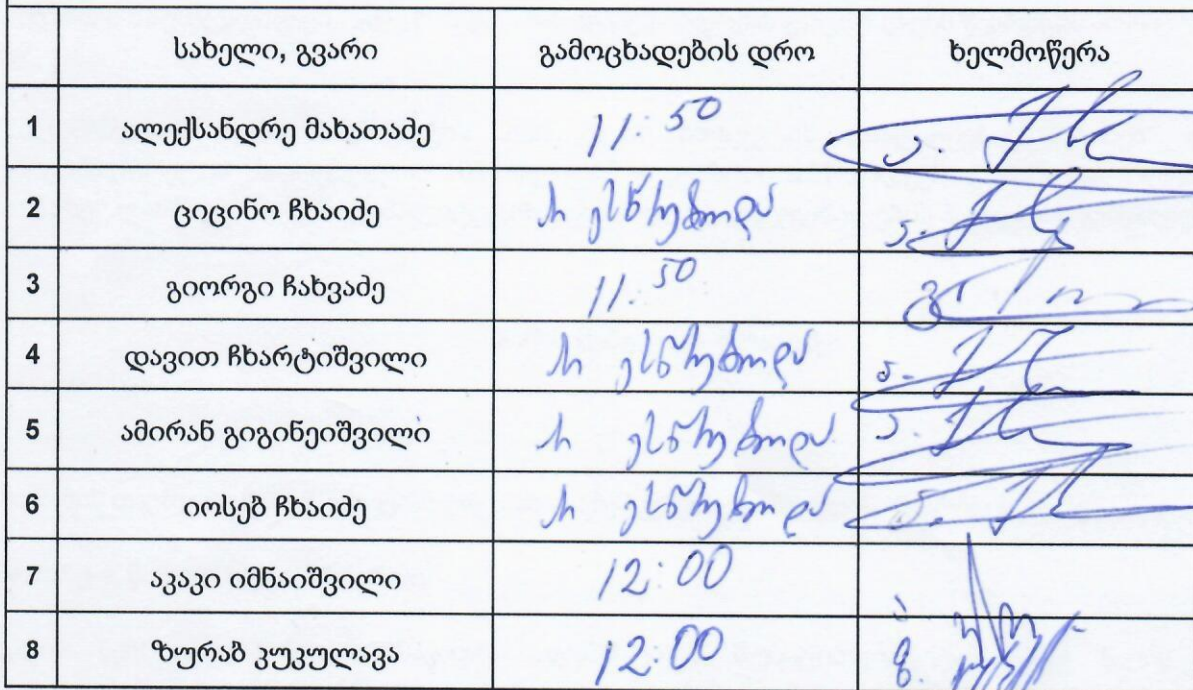 სახელი, გვარი გამოცხადების დრო ხელმოწერა
1 ალექსანდრე მახათაძე 11:50
2 ციცინო ჩხაიძე არ ესწრებოდა
3 გიორგი ჩახვაძე 11:50
4 დავით ჩხარტიშვილი არ ესწრებოდა
5 ამირან გიგინეიშვილი არ ესწრებოდა
6 იოსებ ჩხაიძე არ ესწრებოდა
7 აკაკი იმნაიშვილი 12:00
8 ზურაბ კუკულავა 12:00